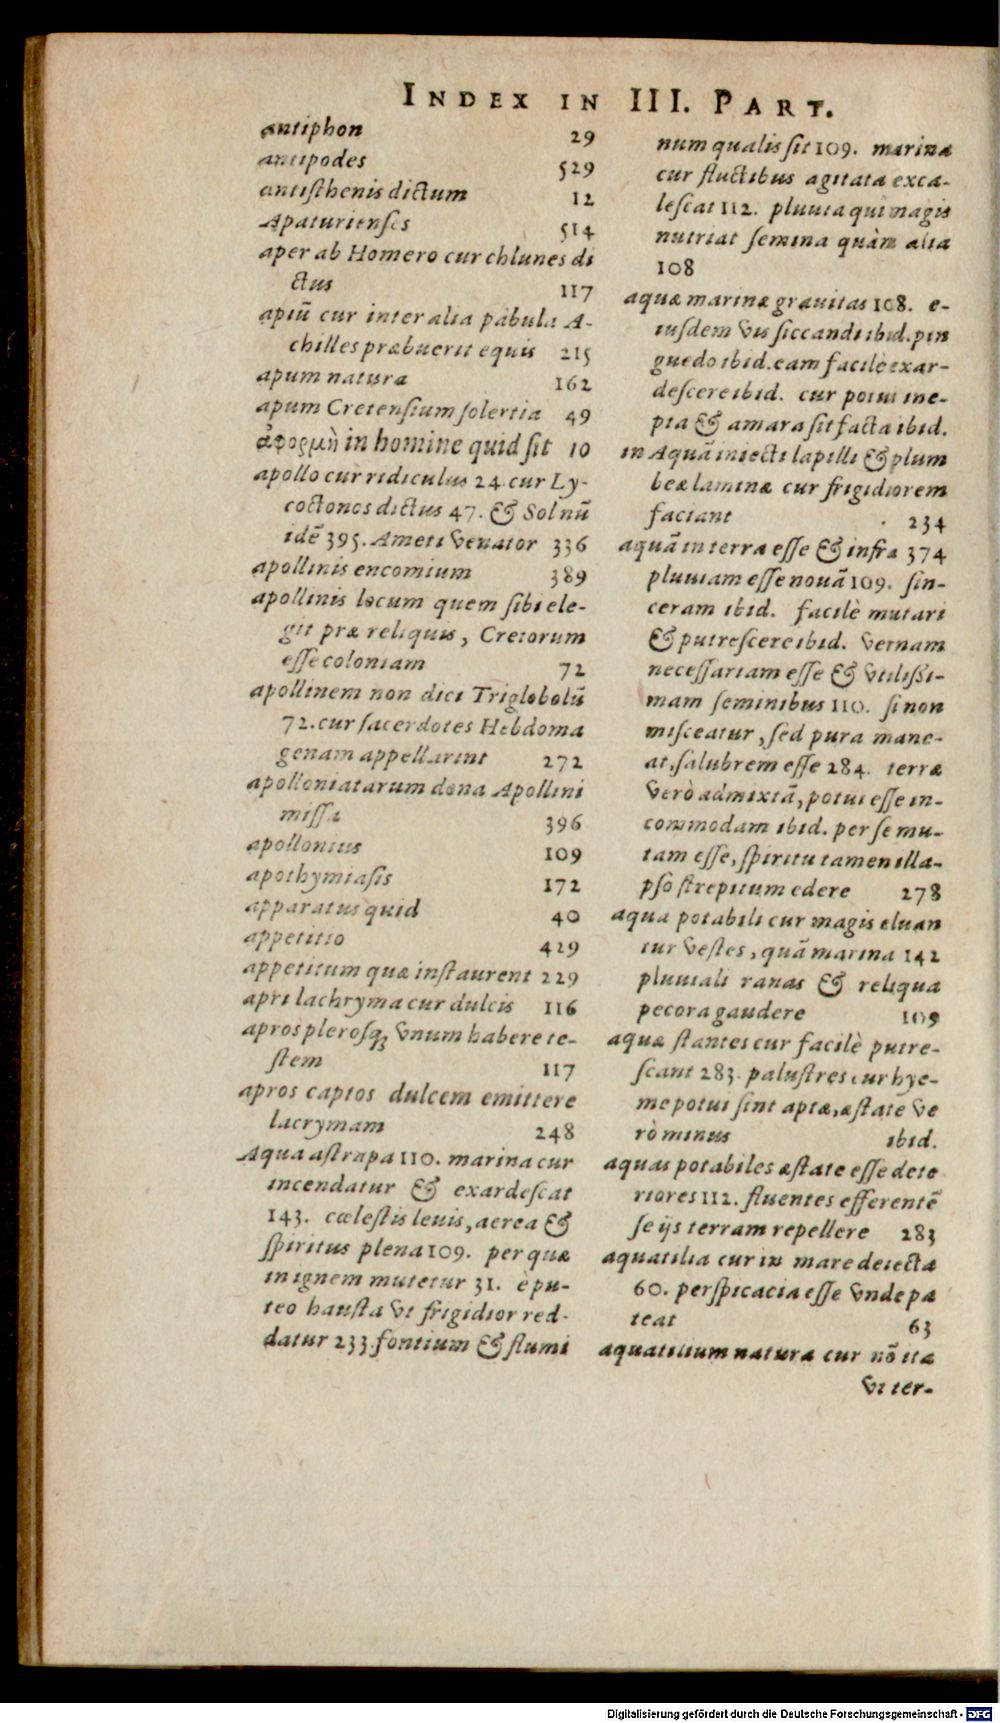 INDEX IN III. PART.
antiphon 29
antipodes 529
antisthenis dictum 12
Apaturienses 514
aper ab Homero cur chlunes di
ctus 117
apiũ cur inter alia pabula A-
chilles præbuerit equis 215
apum natura 162
apum Cretensium solertia 49
ἀφορμὴ in homine quid sit 10
apollo cur ridiculus 24. cur Ly-
coctonos dictus 47. & Sol nũ
idẽ 395. Ameti venator 336
apollinis encomium 389
apollinis locum quem sibi ele-
git præ reliquis, Cretorum
esse coloniam 72
apollinem non dici Triglobolũ
72. cur sacerdotes Hebdoma
genam appellarint 272
apolloniatarum dona Apollini
missa 396
apollonius 109
apothymiasis 172
apparatus quid 40
appetitio 429
appetitum quæ instaurent 229
apri lachryma cur dulcis 116
apros plerosq; vnum habere te-
stem 117
apros captos dulcem emittere
lacrymam 248
Aqua astrapæa 110. marina cur
incendatur & exardescat
143. cœlestis leuis, aerea &
spiritus plena 109. per quæ
in ignem mutetur 31. è pu-
teo hausta vt frigidior red-
datur 233. fontium & flumi
num qualis sit 109. marina
cur fluctibus agitata exca-
lescat 112. pluuia qui magis
nutriat semina quàm alia
108
aquæ marinæ grauitas 108. e-
iusdem vis siccandi ibid. pin
guedo ibid. eam facilè exar-
descere ibid. cur potui ine-
pta & amara sit facta ibid.
in Aquã iniecti lapilli & plum
beæ laminæ cur frigidiorem
faciant 234
aquã in terra esse & infra 374
pluuiam esse nouã 109. sin-
ceram ibid. facilè mutari
& putrescere ibid. vernam
necessariam esse & vtilissi-
mam seminibus 110. si non
misceatur, sed pura mane-
at, salubrem esse 284. terræ
verò admixtã, potui esse in-
commodam ibid. per se mu-
tam esse, spiritu tamen illa-
pso strepitum edere 278
aqua potabili cur magis eluan
tur vestes, quã marina 142
pluuiali ranas & reliqua
pecora gaudere 109
aquæ stantes cur facilè putre-
scant 283. palustres cur hye-
me potui sint aptæ, æstate ve
rò minus ibid.
aquas potabiles æstate esse dete
riores 112. fluentes efferentẽ
se ijs terram repellere 283
aquatilia cur in mare deiecta
60. perspicacia esse vnde pa
teat 63
aquatilium natura cur nõ ita
vt ter-
Digitalisierung gefördert durch die Deutsche Forschungsgemeinschaft - DFG